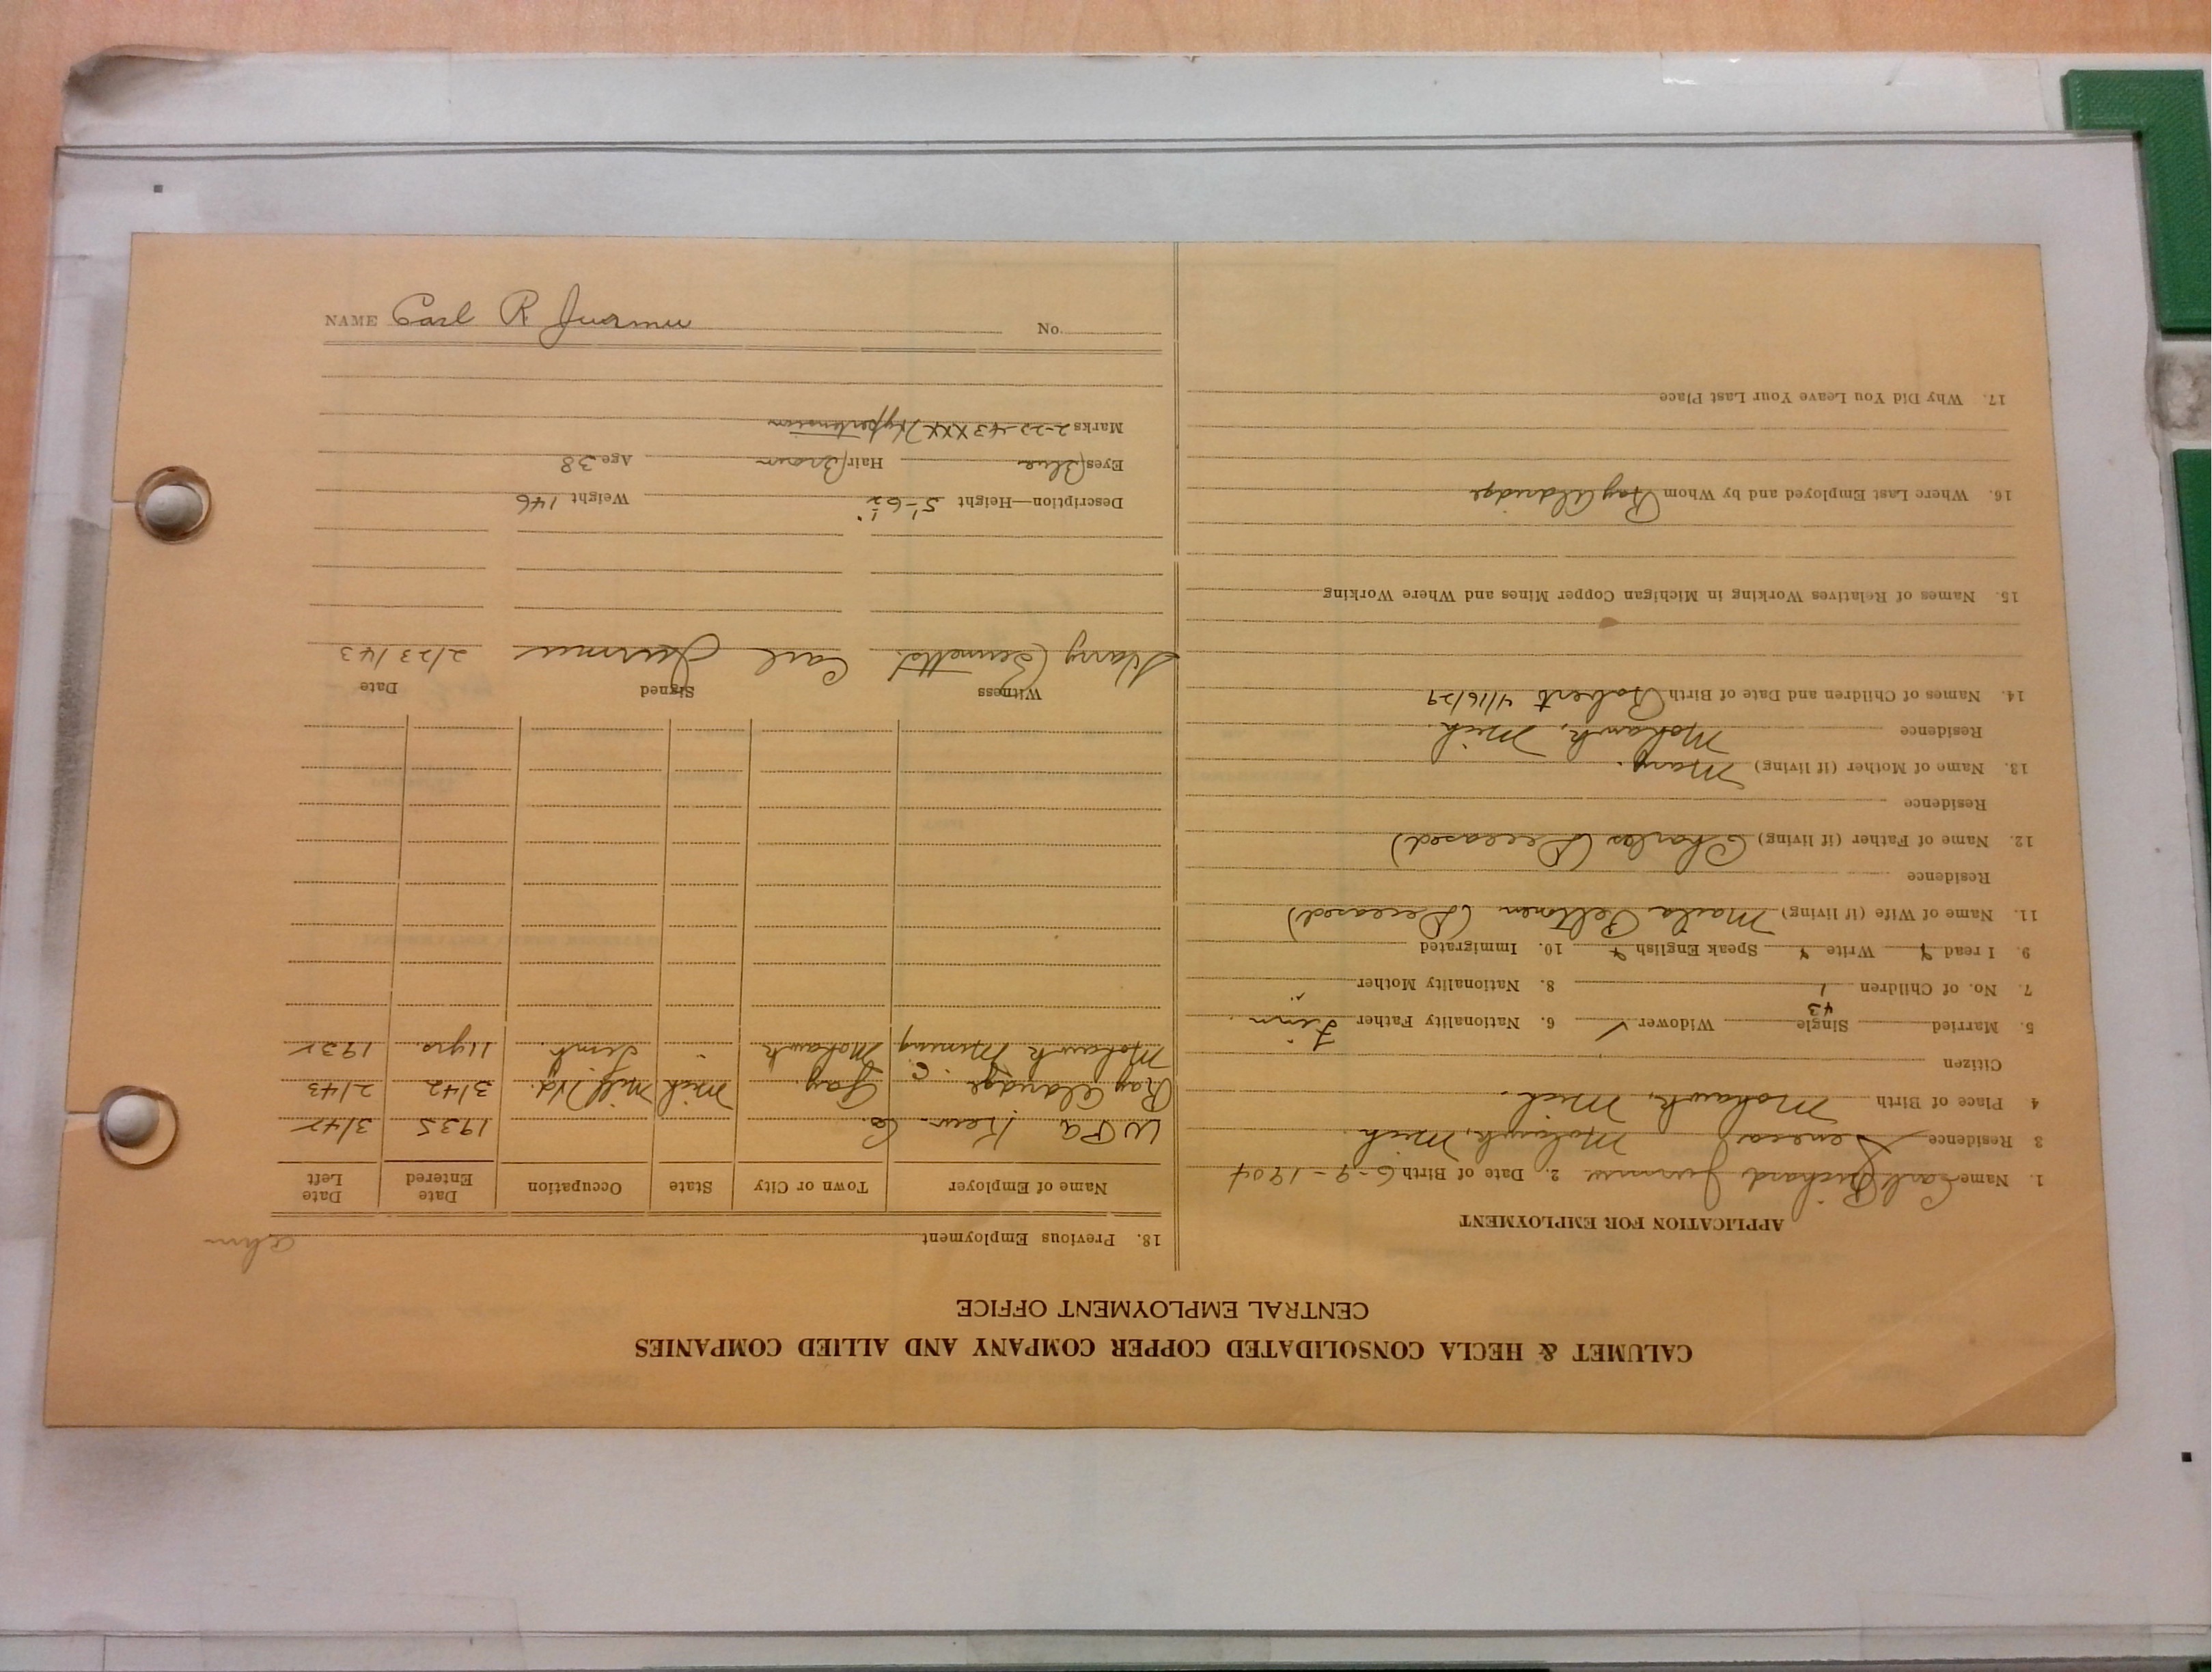 CALUMET & HECLA CONSOLIDATED COPPER COMPANY AND ALLIED COMPANIES
CENTRAL EMPLOYMENT OFFICE
APPLICATION FOR EMPLOYMENT
1. Name Carl Richard Jurmu 2. Date of Birth 6-9-1904
3 Residence Seneca Mohawk, Mich.
4 Place of Birth Mohawk, Mich.
Citizen
5. Married Single 43 Widower ✓ 6. Nationality Father Finn.
7. No. of Children 1 8. Nationality Mother "
9. I read y Write y Speak English y 10. Immigrated
11. Name of Wife (if living) Maila Peltonen (Deceased)
Residence
12. Name of Father (if living) Charles (Deceased)
Residence
13. Name of Mother (if living) Mary.
Residence Mohawk, Mich.
14. Names of Children and Date of Birth Robert 4/16/29
15. Names of Relatives Working in Michigan Copper Mines and Where Working
16. Where Last Employed and by Whom Ray Aldridge
17. Why Did You Leave Your Last Place
18. Previous Employment
Name of Employer Town or City State Occupation Date Entered Date Left
WPA Kew. Co. 1935 3/42
Ray Aldridge Gay. Mich Mill Wd. 3/42 2/43
Mohawk Mining C. Mohawk " Timb. 11yrs. 1932
Witness Signed Date
Harry Bennetts. Carl Jurmu 2/23/43
Description—Height 5'-6½" Weight 146
Eyes Blue Hair Brown Age 38
Marks 2-22-43 XXX Hypertension
NAME Carl R Jurmu No.